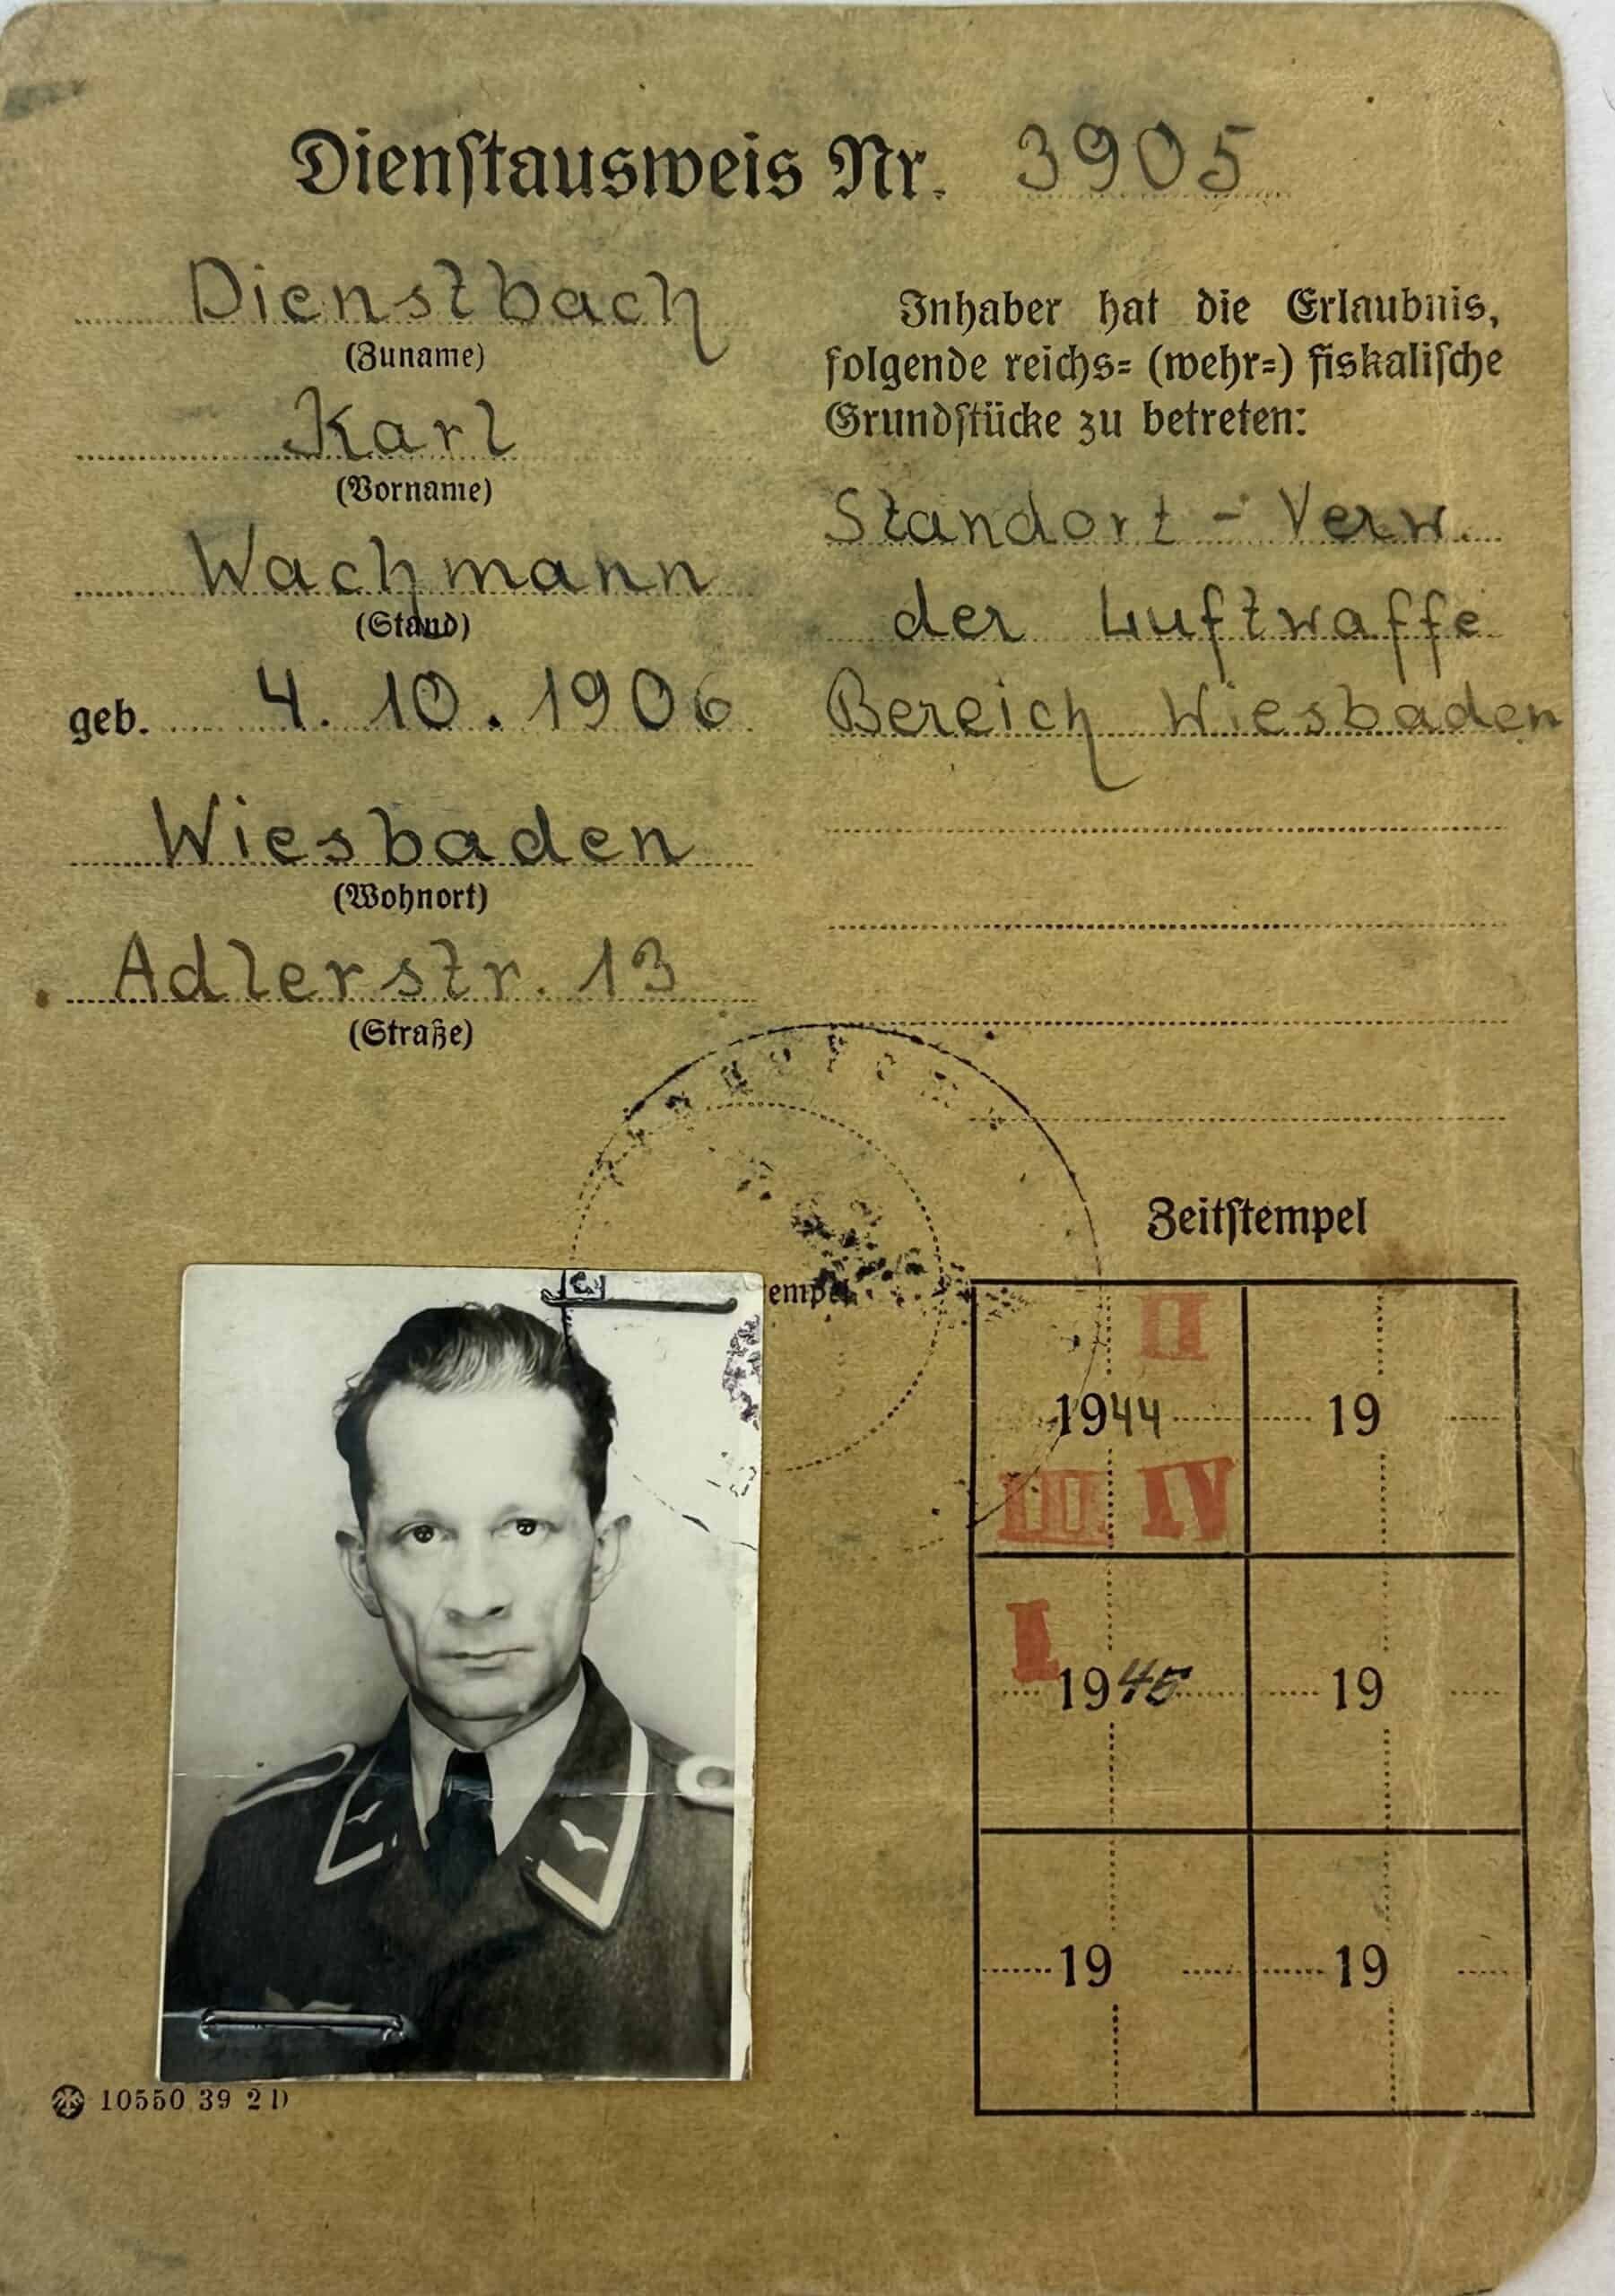 Dienstausweis Nr. 3905
Dienstbach
(Zuname)
Karl
(Vorname)
Wachmann
(Stand)
geb. 4. 10. 1906
Wiesbaden
(Wohnort)
Adlerstr. 13
(Straße)
Inhaber hat die Erlaubnis,
folgende reichs= (wehr=) fiskalische
Grundstücke zu betreten:
Standort - Verw.
der Luftwaffe
Bereich Wiesbaden
Zeitstempel
II
1944
19
III IV
I
1945
19
19
19
10550 39 2D